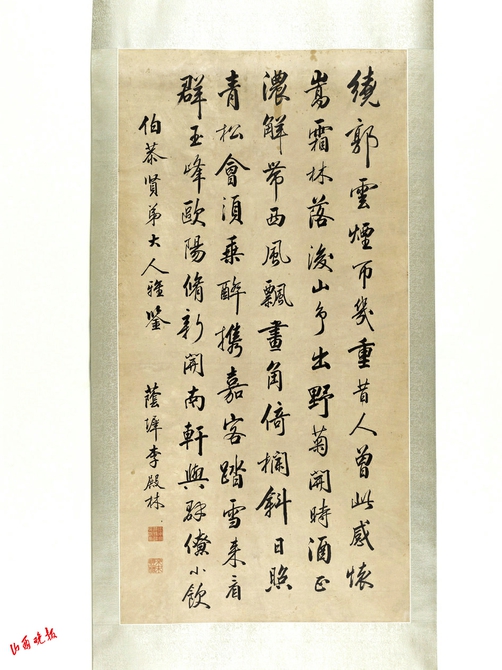 繞郭雲煙帀幾重昔人曾此感懷
嵩霜林落後山爭出野菊開時酒正
濃解帶西風飄畫角倚欄斜日照
青松會須乗醉携嘉客踏雪来看
群玉峰歐陽脩新開南軒與群僚小飲
伯恭賢弟大人雅鑒
蔭墀李殿林
山西晚报